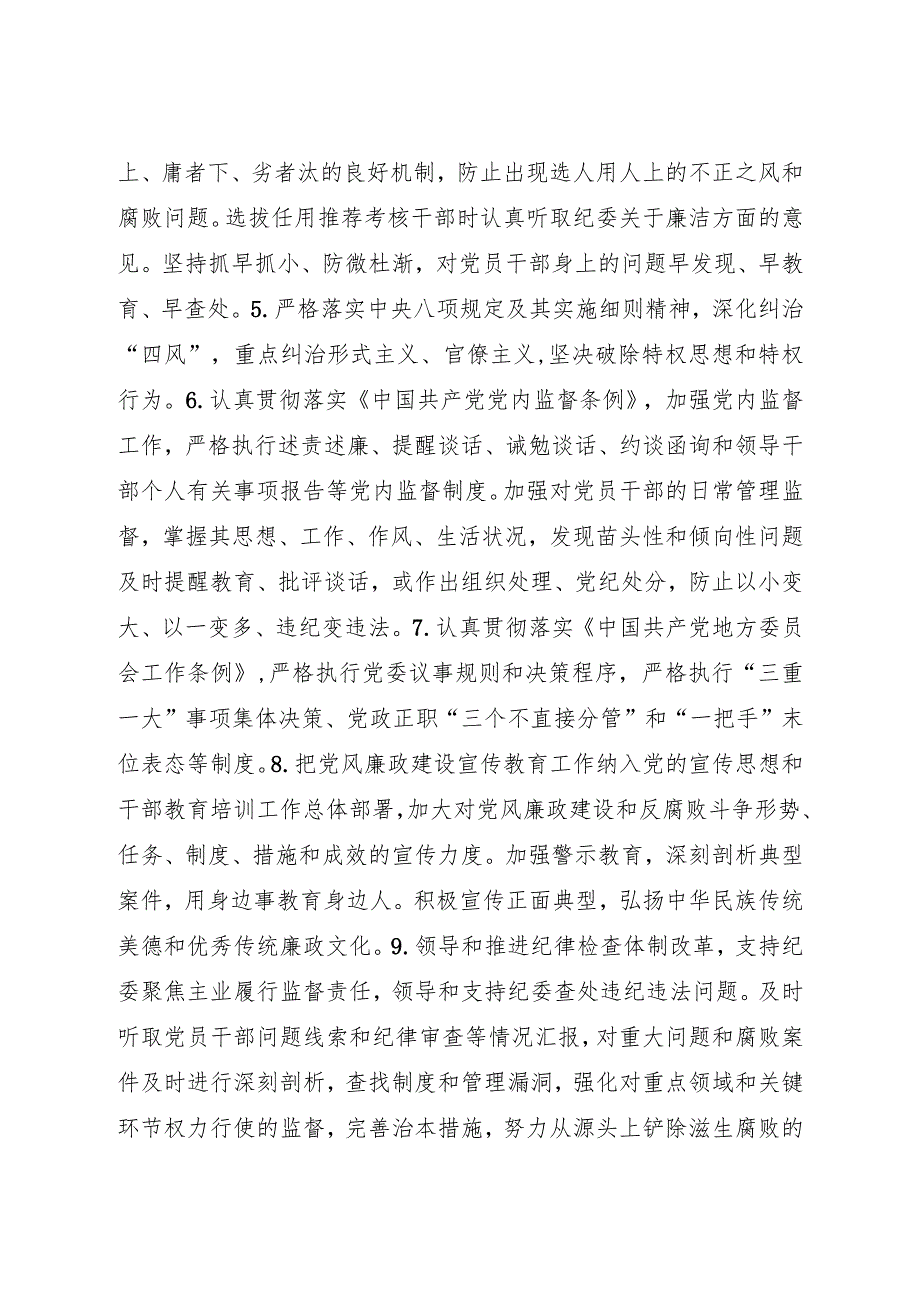 上、庸者下、劣者汰的良好机制，防止出现选人用人上的不正之风和
腐败问题。选拔任用推荐考核干部时认真听取纪委关于廉洁方面的意
见。坚持抓早抓小、防微杜渐，对党员干部身上的问题早发现、早教
育、早查处。5.严格落实中央八项规定及其实施细则精神，深化纠治
“四风”，重点纠治形式主义、官僚主义,坚决破除特权思想和特权
行为。6.认真贯彻落实《中国共产党党内监督条例》，加强党内监督
工作，严格执行述责述廉、提醒谈话、诫勉谈话、约谈函询和领导干
部个人有关事项报告等党内监督制度。加强对党员干部的日常管理监
督，掌握其思想、工作、作风、生活状况，发现苗头性和倾向性问题
及时提醒教育、批评谈话，或作出组织处理、党纪处分，防止以小变
大、以一变多、违纪变违法。7.认真贯彻落实《中国共产党地方委员
会工作条例》,严格执行党委议事规则和决策程序，严格执行“三重
一大”事项集体决策、党政正职“三个不直接分管”和“一把手”末
位表态等制度。8.把党风廉政建设宣传教育工作纳入党的宣传思想和
干部教育培训工作总体部署,加大对党风廉政建设和反腐败斗争形势、
任务、制度、措施和成效的宣传力度。加强警示教育，深刻剖析典型
案件，用身边事教育身边人。积极宣传正面典型，弘扬中华民族传统
美德和优秀传统廉政文化。9.领导和推进纪律检查体制改革，支持纪
委聚焦主业履行监督责任，领导和支持纪委查处违纪违法问题。及时
听取党员干部问题线索和纪律审查等情况汇报，对重大问题和腐败案
件及时进行深刻剖析，查找制度和管理漏洞，强化对重点领域和关键
环节权力行使的监督，完善治本措施，努力从源头上铲除滋生腐败的